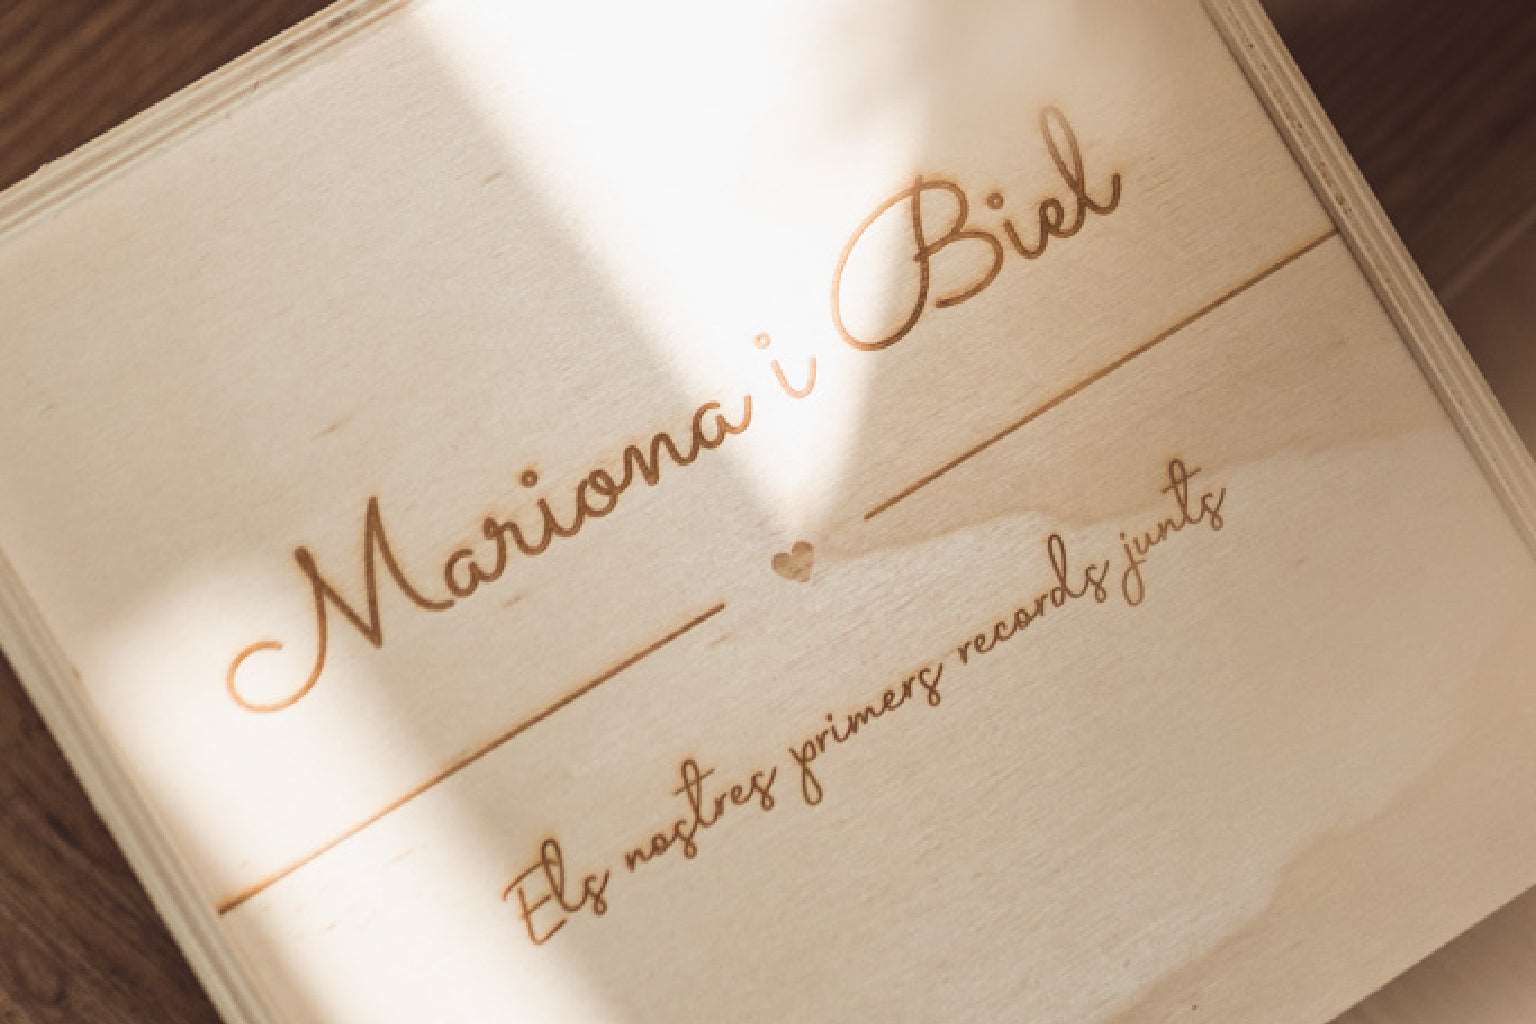 Mariona i Biel
Els nostres primers records junts